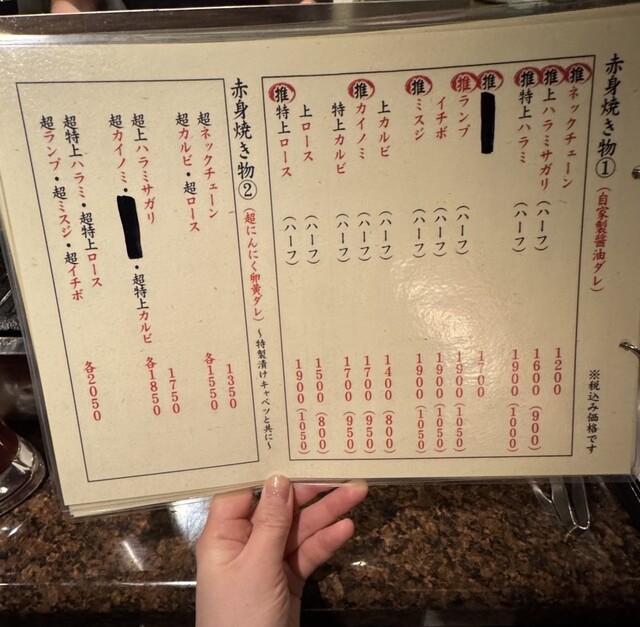 赤身焼き物①(自家製醤油ダレ) ※税込み価格です
推ネックチェーン 1200
推上ハラミサガリ (ハーフ) 1600 (900)
推特上ハラミ (ハーフ) 1900 (1000)
推 1700
推ランプ (ハーフ) 1900 (1050)
イチボ (ハーフ) 1900 (1050)
推ミスジ (ハーフ) 1900 (1050)
上カルビ (ハーフ) 1400 (800)
推カイノミ (ハーフ) 1700 (950)
特上カルビ (ハーフ) 1700 (950)
上ロース (ハーフ) 1500 (800)
推特上ロース (ハーフ) 1900 (1050)
赤身焼き物②(超にんにく卵黄ダレ) ～特製漬けキャベツと共に～
超ネックチェーン 1350
超カルビ・超ロース 各1550
超上ハラミサガリ 1750
超カイノミ・ ・超特上カルビ 各1850
超特上ハラミ・超特上ロース
超ランプ・超ミスジ・超イチボ 各2050